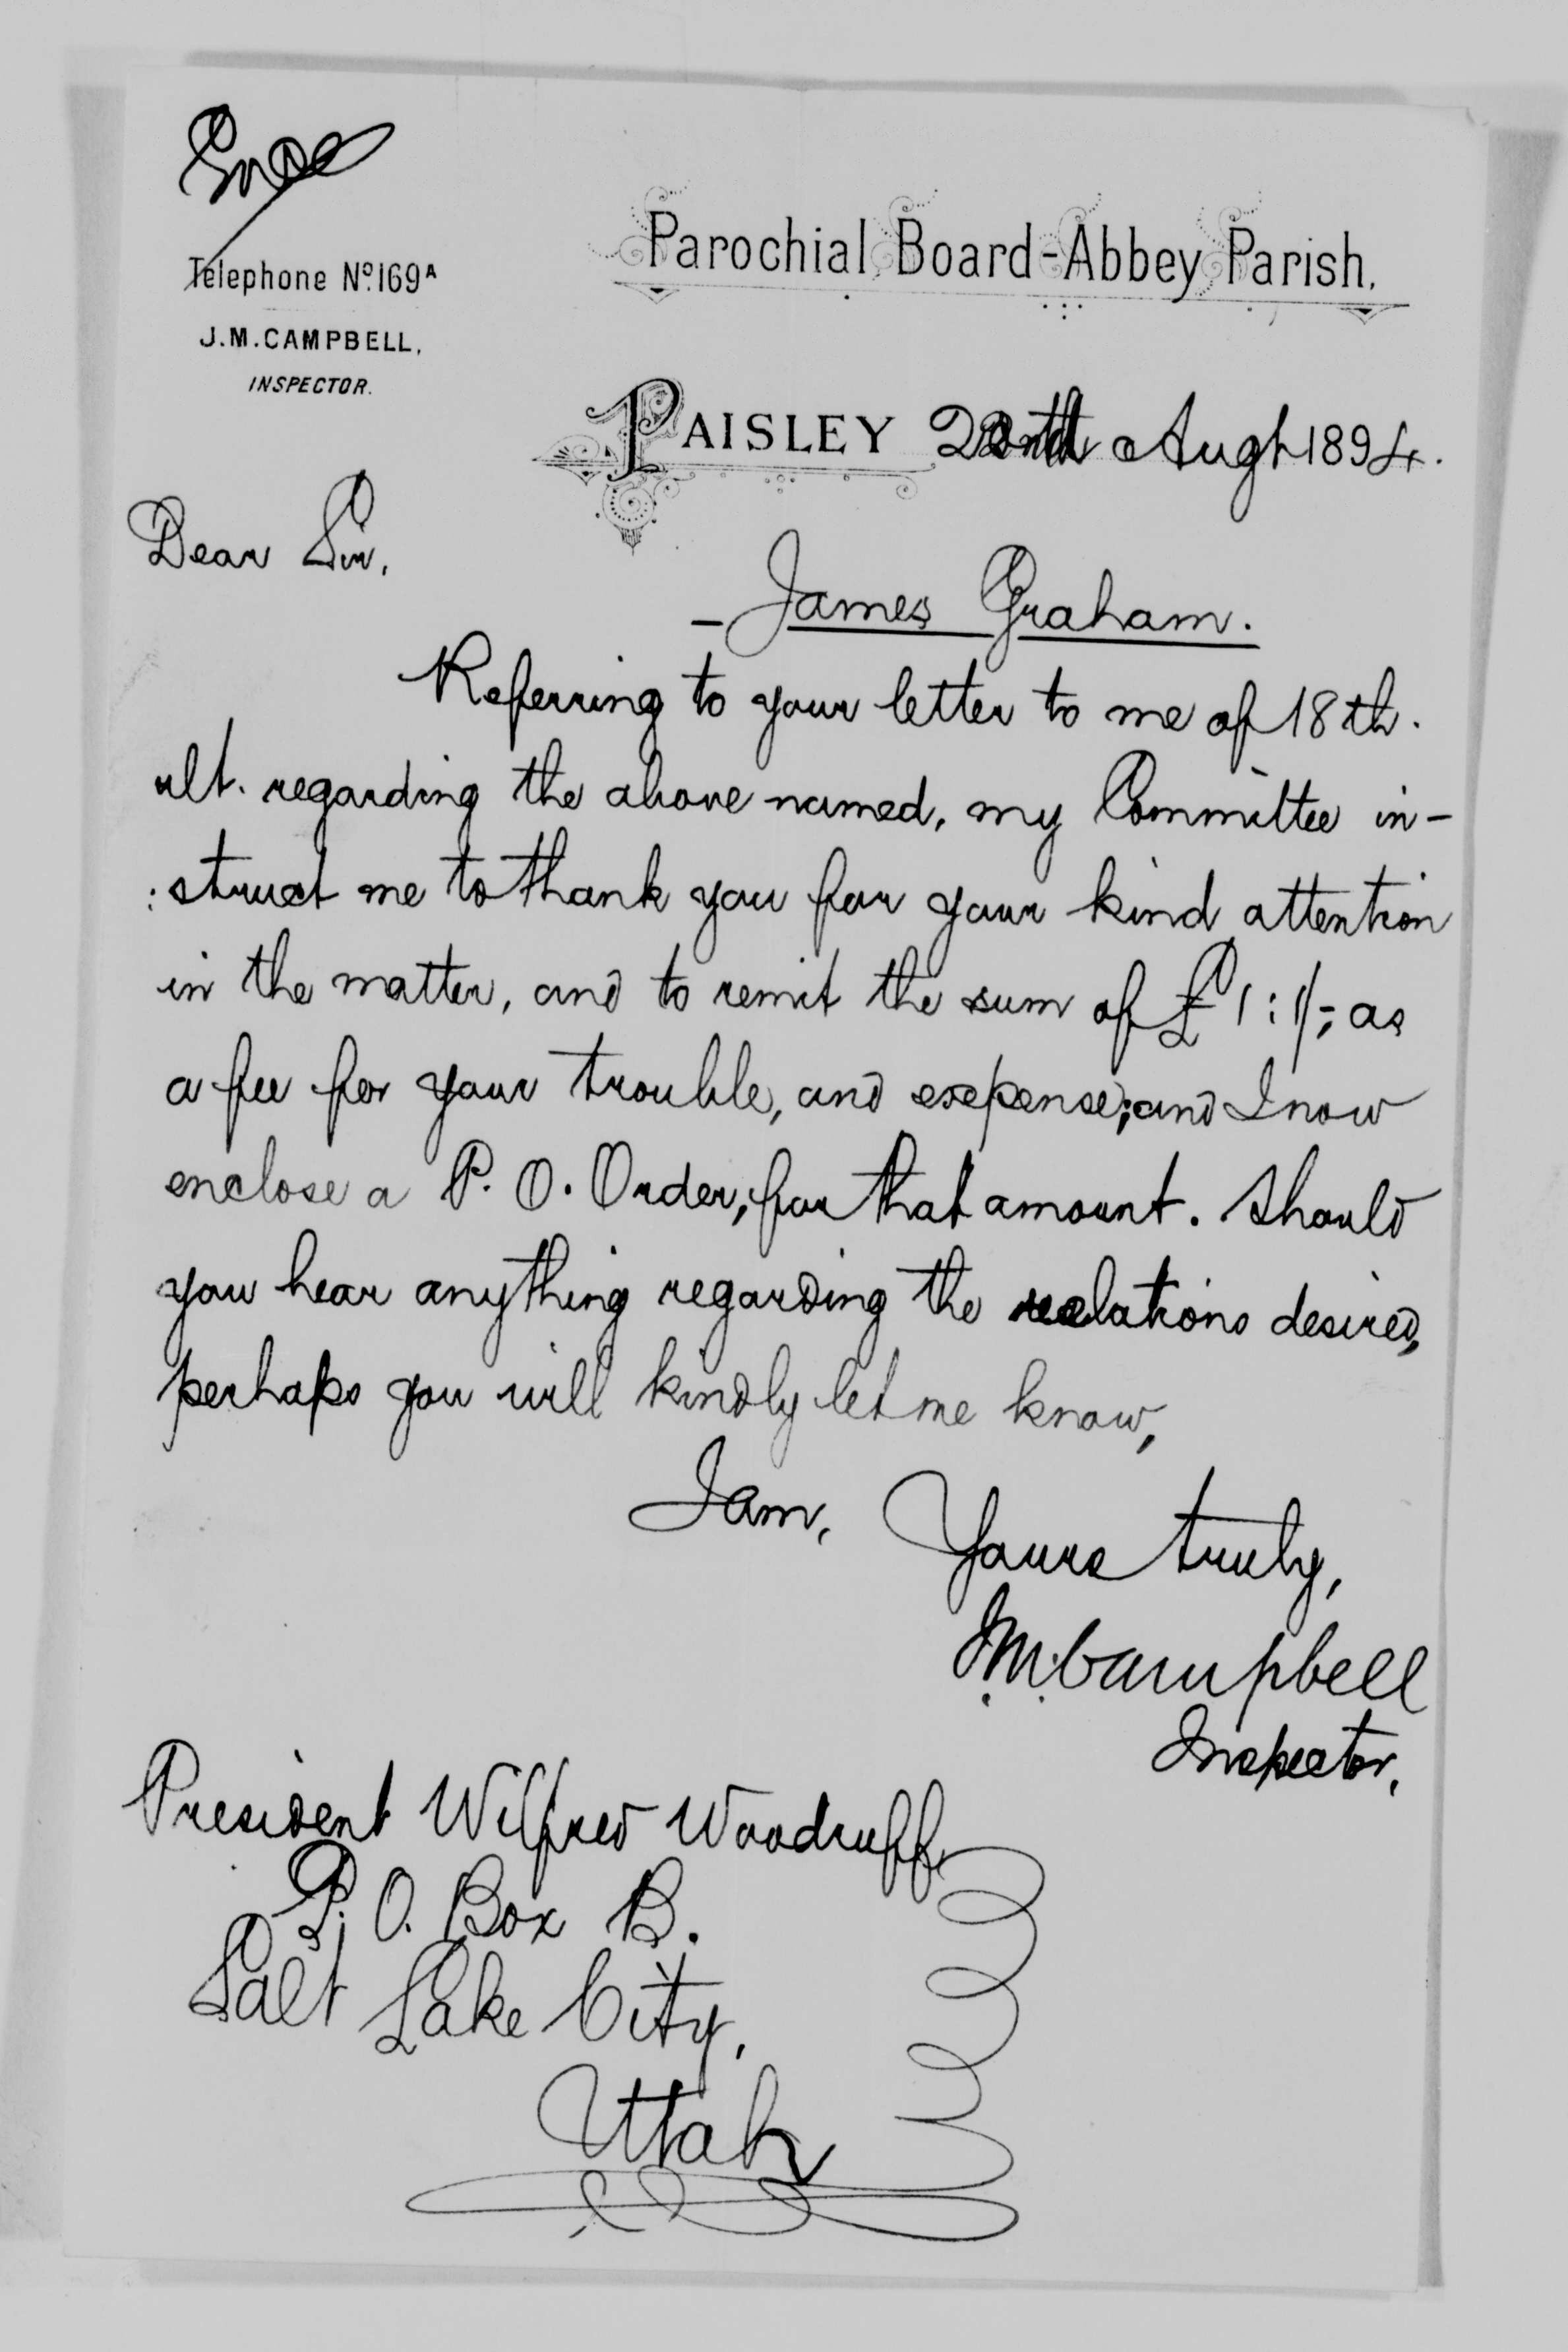 Telephone Nº. 169ᴬ
J. M. CAMPBELL,
INSPECTOR.
Parochial Board-Abbey Parish.
PAISLEY Augt 1894.
Dear Sir,
– James Graham.
Referring to your letter to me of 18th.
ult. regarding the above named, my Committee in-
:struct me to thank you for your kind attention
in the matter, and to remit the sum of £1:1/-; as
a fee for your trouble, and expense; and I now
enclose a P. O. Order, for that amount. Should
you hear anything regarding the relations desired,
perhaps you will kindly let me know,
I am,
Yours truly,
J. M. Campbell
Inspector,
President Wilfred Woodruff
P. O. Box B.
Salt Lake City,
Utah